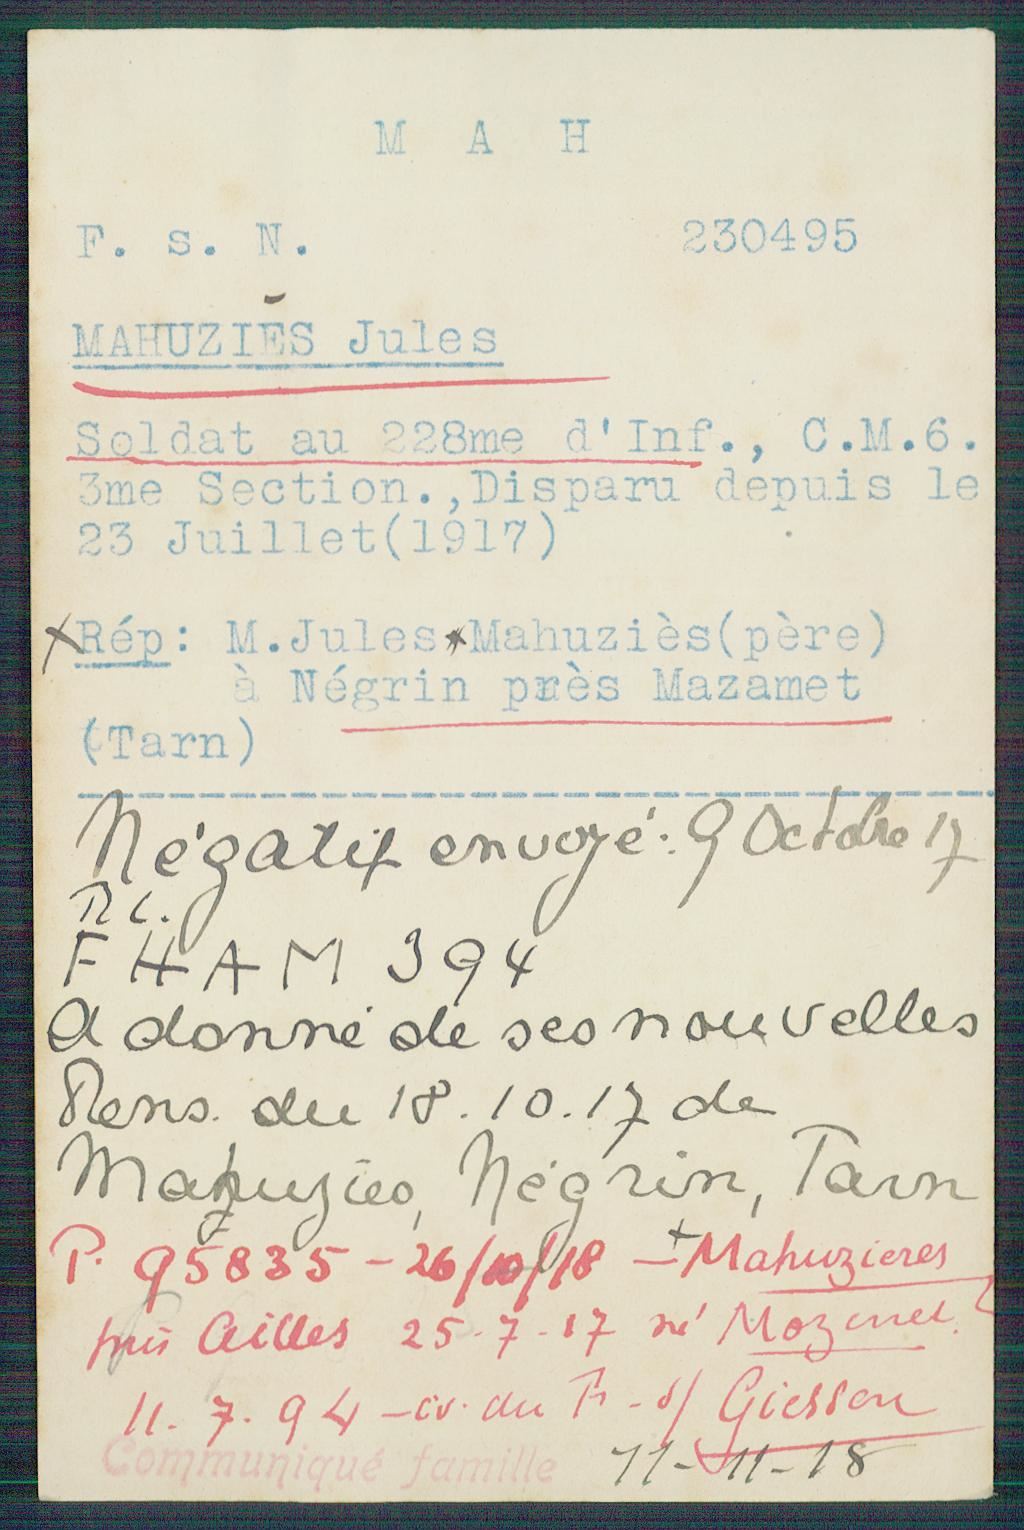 M A H
F. s. N. 230495
MAHUZIÈS Jules
Soldat au 228me d'Inf., C.M.6.
3me Section.,Disparu depuis le
23 Juillet(1917)
Rép: M.Jules Mahuziès(père)
à Négrin près Mazamet
(Tarn)
Négatif envoyé: 9 Octobre 17
FHAM 394
A donné de ses nouvelles
Rens. du 18.10.17 de
Mahuziès, Négrin, Tarn
P. 95835 - 26/10/18 - Mahuzieres
pris Ailles 25-7-17 né
11.7.94 - du s/ Giessen
Communiqué famille 11-11-18